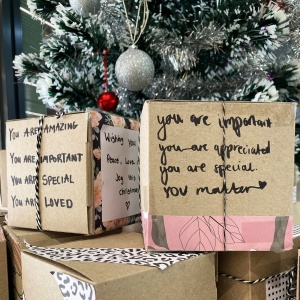 YOU ARE AMAZING
YOU ARE IMPORTANT
YOU ARE SPECIAL
YOU ARE LOVED
Wishing you
Peace, Love
Joy this
christmas
you are important
you are appreciated
you are special.
YOU matter